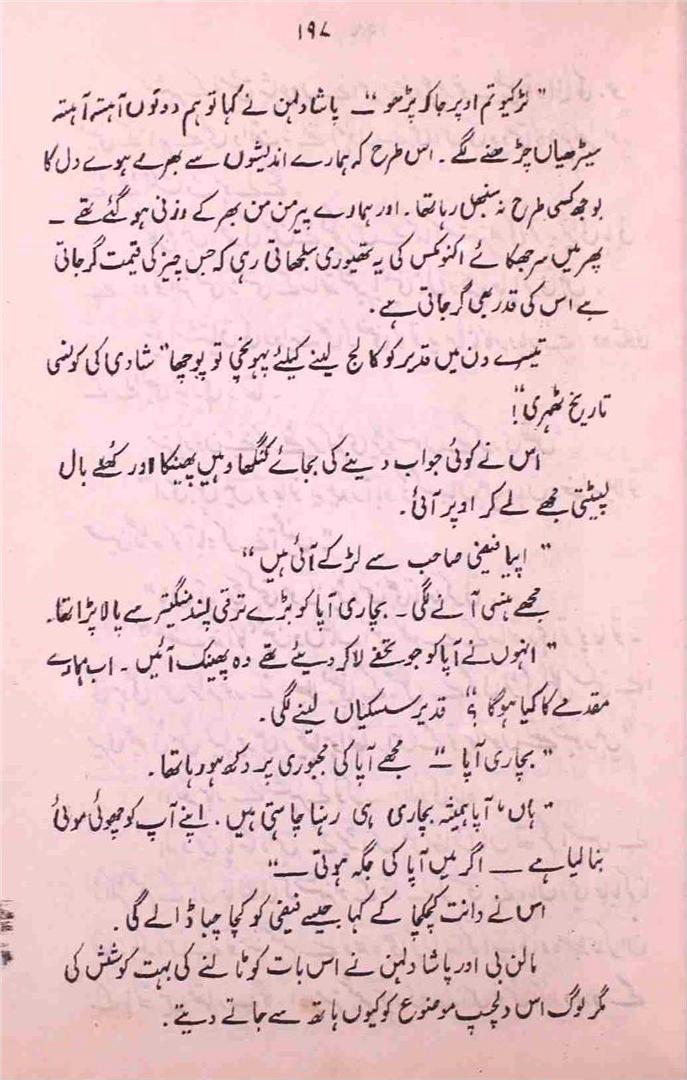 ۱۹۸
” لڑکیو تم اوپر جا کر پڑھو “ — پاشا دلہن نے کہا تو ہم دونوں آہستہ آہستہ
سیڑھیاں چڑھنے لگے ۔ اس طرح کہ ہمارے اندیشوں سے بھرے ہوے دل کا
بوجھ کسی طرح نہ سنبھل رہا تھا ۔ اور ہمارے پیر من من بھر کے وزنی ہو گئے تھے ۔
پھر میں سر جھکائے اکنوکس کی یہ تھیوری سلجھاتی رہی کہ جس چیز کی قیمت گر جاتی
ہے اس کی قدر بھی گر جاتی ہے ۔
تیسرے دن میں قدیر کو کالج لینے کیلئے پہونچی تو پوچھا ” شادی کی کونسی
تاریخ ٹھہری “!
اس نے کوئی جواب دینے کی بجائے کنگھا وہیں پھینکا اور کھلے بال
لپیٹتی مجھے لے کر اوپر آئی ۔
” اپیا فیضی صاحب سے لڑ کے آئی ہیں “
مجھے ہنسی آنے لگی ۔ بچاری آپا کو بڑے ترقی پسند منگیتر سے پالا پڑا تھا ۔
” انہوں نے آپا کو جو تحفے لا کر دیئے تھے وہ پھینک آئیں ۔ اب ہمارے
مقدمے کا کیا ہوگا ؟“ قدیر سسکیاں لینے لگی ۔
” بچاری آپا — “ مجھے آپا کی مجبوری پر دکھ ہو رہا تھا ۔
” ہاں ‘ آپا ہمیشہ بچاری ہی رہنا چاہتی ہیں ۔ اپنے آپ کو چھوئی موئی
بنا لیا ہے — اگر میں آپا کی جگہ ہوتی — “
اس نے دانت کچکچا کے کہا جیسے فیضی کو کچا چبا ڈالے گی ۔
مالن بی اور پاشا دلہن نے اس بات کو ٹالنے کی بہت کوشش کی
مگر لوگ اس دلچسپ موضوع کو کیوں ہاتھ سے جاتے دیتے ۔